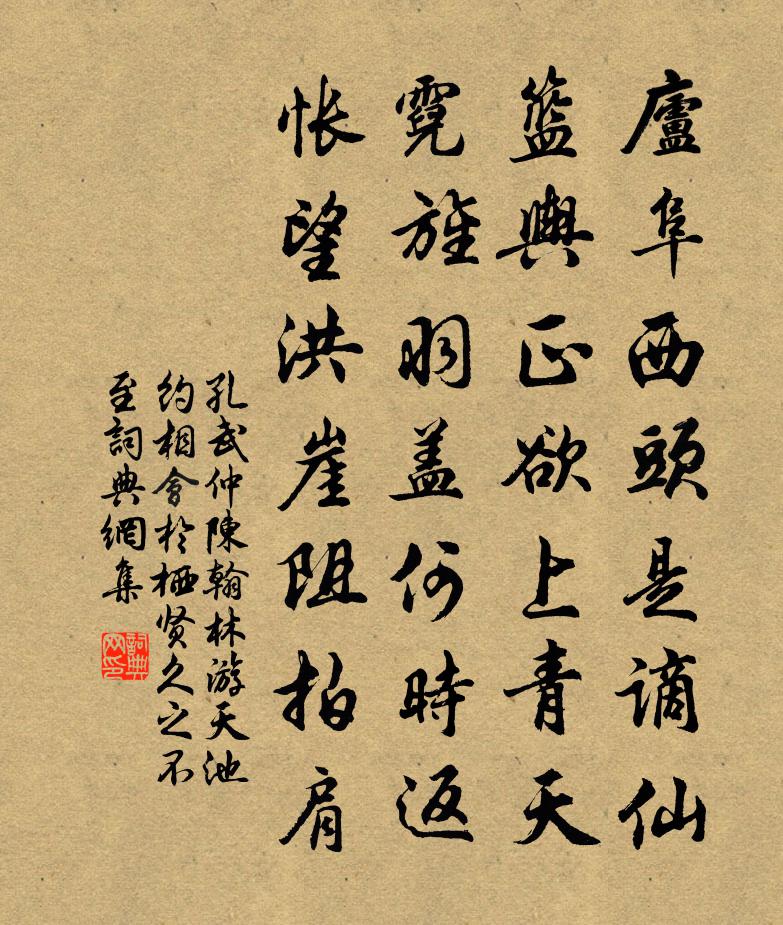 廬阜西頭是謫仙
籃輿正欲上青天
霓旌羽蓋何時返
悵望洪崖阻拍肩
孔武仲陳翰林游天池
約相會於栖贤久之不
至詞典網集
詞典
网印